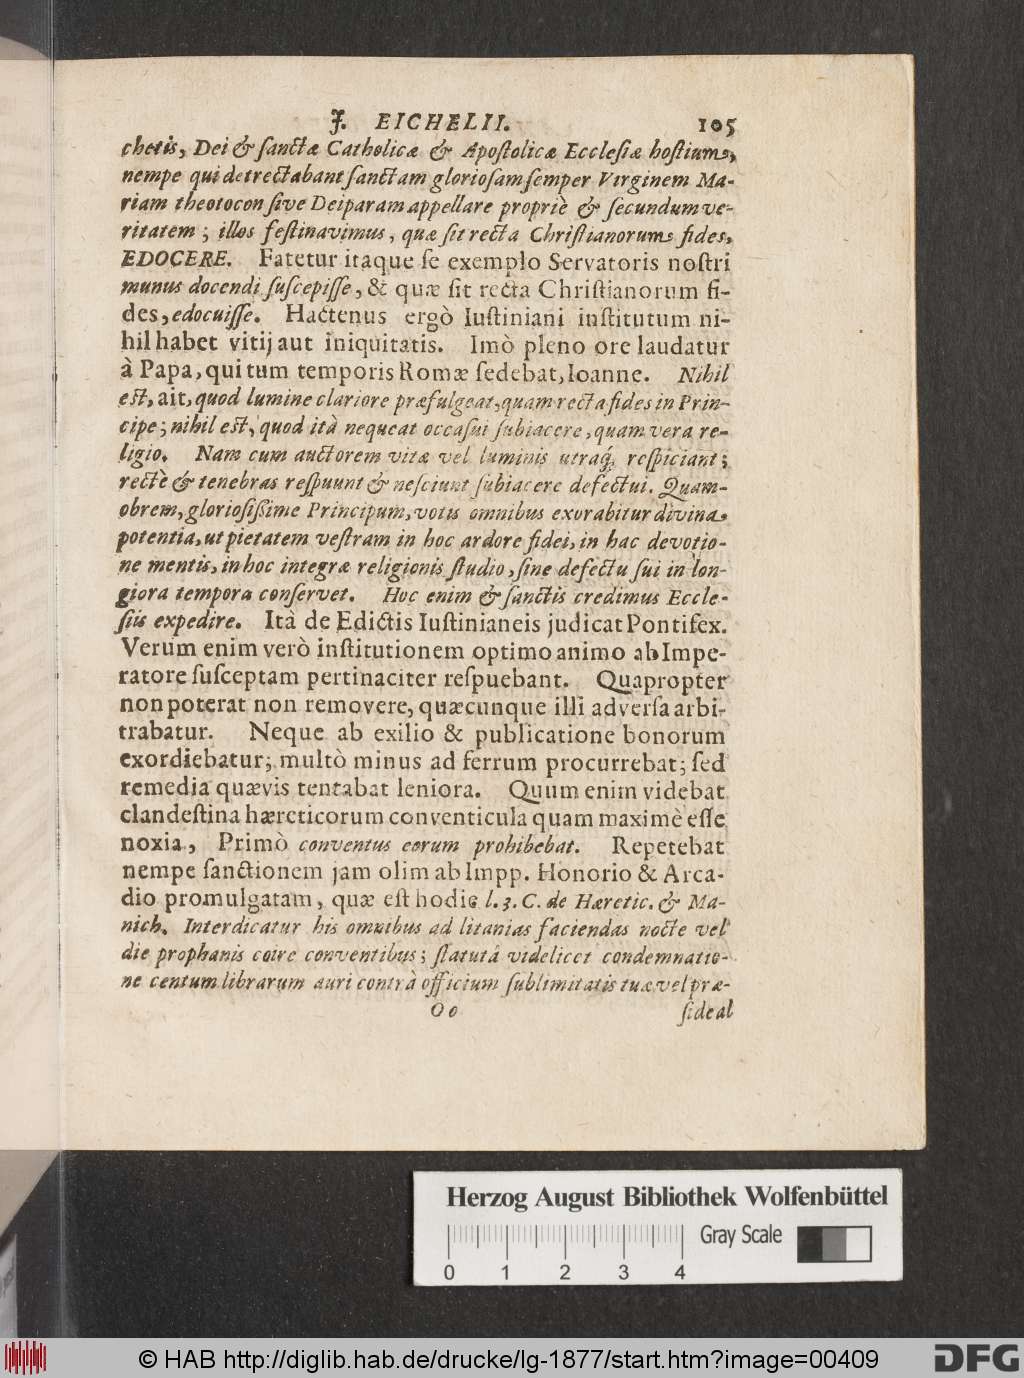 J. EICHELII. 105
chetis, Dei & ſanctæ Catholicæ & Apoſtolicæ Eccleſiæ hoſtium,
nempe qui detrectabant ſanctam glorioſam ſemper Virginem Ma-
riam theotocon ſive Deiparam appellare propriè & ſecundum ve-
ritatem; illos feſtinavimus, quæ ſit recta Chriſtianorum fides,
EDOCERE. Fatetur itaque ſe exemplo Servatoris noſtri
munus docendi ſuſcepiſſe, & quæ ſit recta Chriſtianorum fi-
des, edocuiſſe. Hactenus ergò Iuſtiniani inſtitutum ni-
hil habet vitij aut iniquitatis. Imò pleno ore laudatur
à Papa, qui tum temporis Romæ ſedebat, Ioanne. Nihil
eſt, ait, quod lumine clariore præfulgeat, quam recta fides in Prin-
cipe; nihil eſt, quod ità nequeat occaſui ſubiacere, quam vera re-
ligio. Nam cum auctorem vitæ vel luminis utraq́; reſpiciant;
rectè & tenebras reſpuunt & neſciunt ſubiacere defectui. Quam-
obrem, glorioſiſſime Principum, votis omnibus exorabitur divina
potentia, ut pietatem veſtram in hoc ardore fidei, in hac devotio-
ne mentis, in hoc integræ religionis ſtudio, ſine defectu ſui in lon-
giora tempora conſervet. Hoc enim & ſanctis credimus Eccle-
ſiis expedire. Ità de Edictis Iuſtinianeis judicat Pontifex.
Verum enim verò inſtitutionem optimo animo ab Impe-
ratore ſuſceptam pertinaciter reſpuebant. Quapropter
non poterat non removere, quæcunque illi adverſa arbi-
trabatur. Neque ab exilio & publicatione bonorum
exordiebatur; multò minus ad ferrum procurrebat; ſed
remedia quævis tentabat leniora. Quum enim videbat
clandeſtina hæreticorum conventicula quam maximè eſſe
noxia, Primò conventus eorum prohibebat. Repetebat
nempe ſanctionem jam olim ab Impp. Honorio & Arca-
dio promulgatam, quæ eſt hodie l. 3. C. de Hæretic. & Ma-
nich. Interdicatur his omnibus ad litanias faciendas nocte vel
die prophanis coire conventibus; ſtatutâ videlicet condemnatio-
ne centum librarum auri contrà officium ſublimitatis tuæ vel præ-
Oo ſideal
Herzog August Bibliothek Wolfenbüttel
Gray Scale
0 1 2 3 4
© HAB http://diglib.hab.de/drucke/lg-1877/start.htm?image=00409
DFG